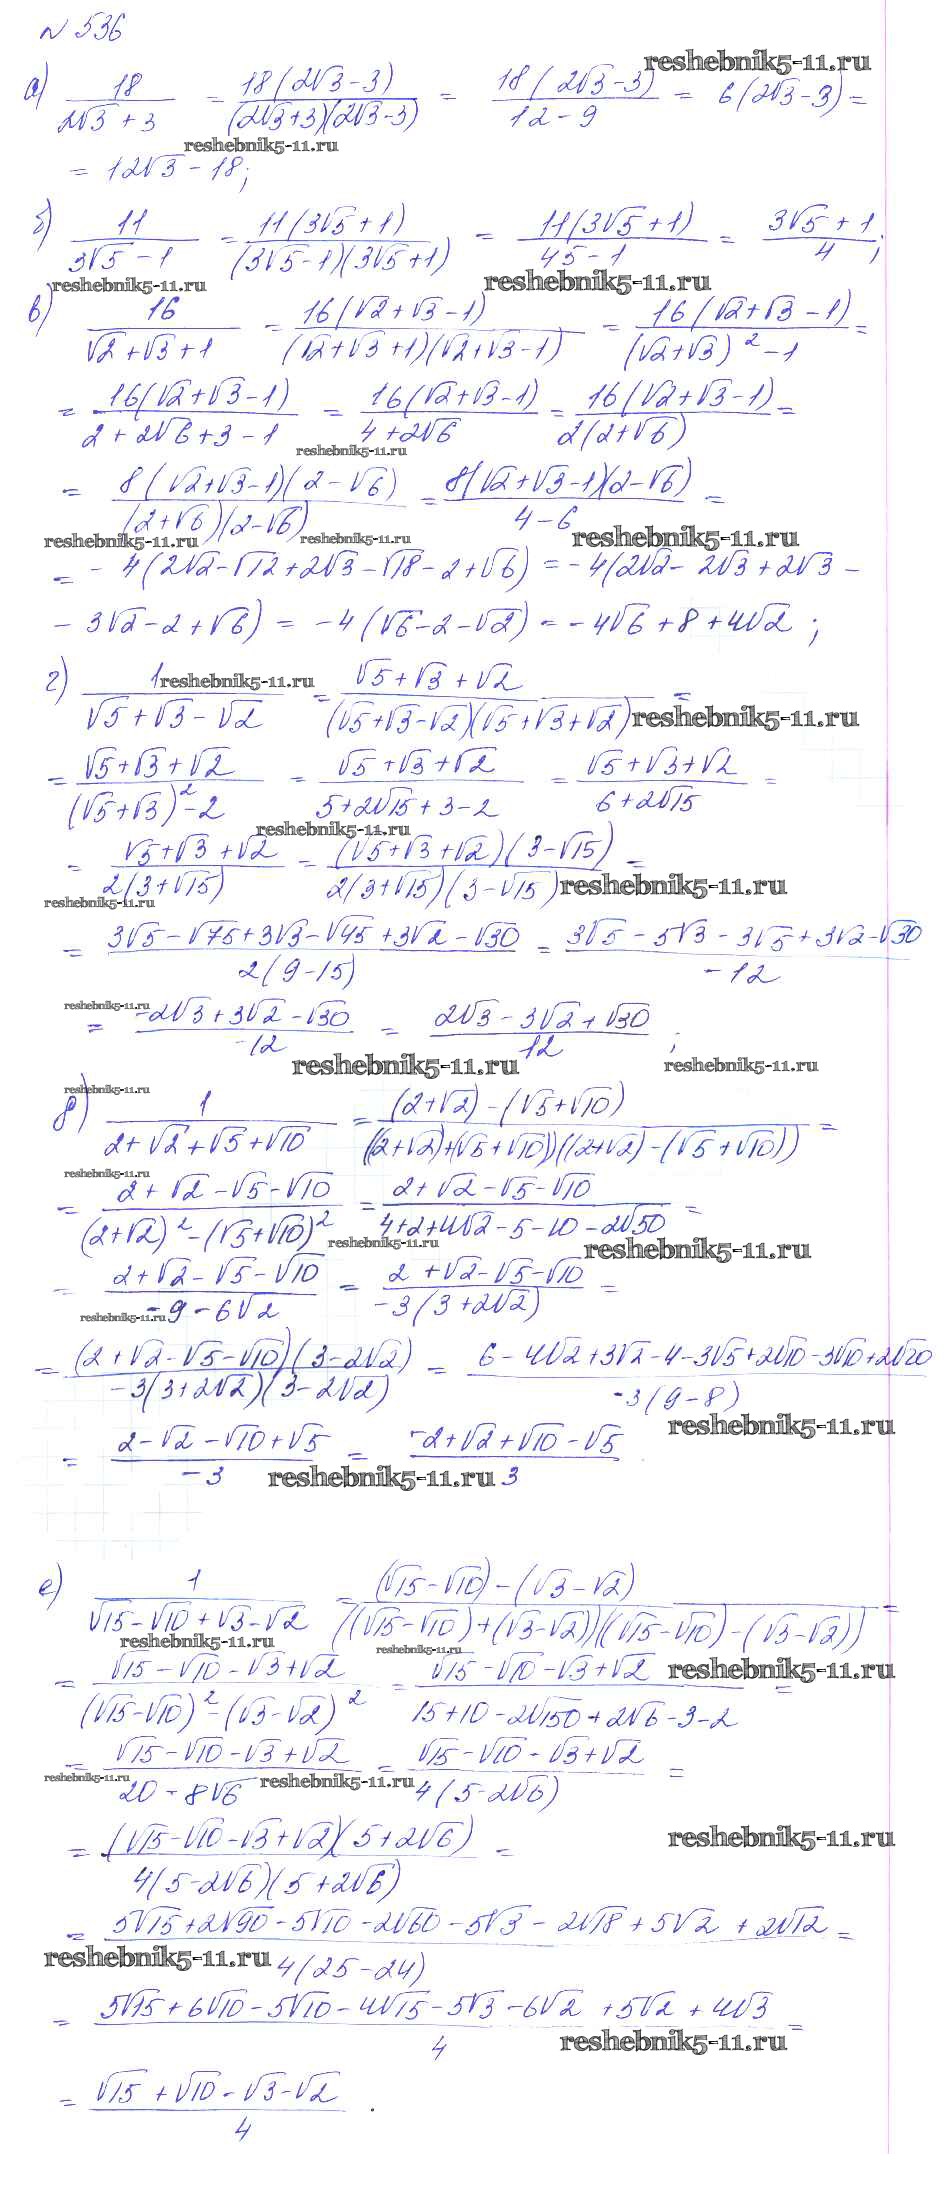 № 536
reshebnik5-11.ru
а) 18/(2√3 + 3) = 18(2√3 - 3)/((2√3+3)(2√3-3)) = 18(2√3 - 3)/(12 - 9) = 6(2√3 - 3) =
reshebnik5-11.ru
= 12√3 - 18;
б) 11/(3√5 - 1) = 11(3√5 + 1)/((3√5-1)(3√5+1)) = 11(3√5 + 1)/(45 - 1) = (3√5 + 1)/4;
reshebnik5-11.ru reshebnik5-11.ru
в) 16/(√2 + √3 + 1) = 16(√2 + √3 - 1)/((√2 + √3 + 1)(√2 + √3 - 1)) = 16(√2 + √3 - 1)/((√2 + √3)² - 1) =
= 16(√2 + √3 - 1)/(2 + 2√6 + 3 - 1) = 16(√2 + √3 - 1)/(4 + 2√6) = 16(√2 + √3 - 1)/(2(2 + √6)) =
reshebnik5-11.ru
= 8(√2+√3-1)(2 - √6)/((2+√6)(2-√6)) = 8(√2+√3-1)(2-√6)/(4 - 6) =
reshebnik5-11.ru reshebnik5-11.ru reshebnik5-11.ru
= - 4(2√2 - √12 + 2√3 - √18 - 2 + √6) = -4(2√2 - 2√3 + 2√3 -
- 3√2 - 2 + √6) = -4(√6 - 2 - √2) = -4√6 + 8 + 4√2;
г) 1/(√5 + √3 - √2) = (√5 + √3 + √2)/((√5+√3-√2)(√5+√3+√2)) =
reshebnik5-11.ru reshebnik5-11.ru
= (√5 + √3 + √2)/((√5+√3)² - 2) = (√5 + √3 + √2)/(5 + 2√15 + 3 - 2) = (√5 + √3 + √2)/(6 + 2√15) =
reshebnik5-11.ru
= (√5 + √3 + √2)/(2(3 + √15)) = (√5 + √3 + √2)(3 - √15)/(2(3 + √15)(3 - √15)) =
reshebnik5-11.ru reshebnik5-11.ru
= (3√5 - √75 + 3√3 - √45 + 3√2 - √30)/(2(9 - 15)) = (3√5 - 5√3 - 3√5 + 3√2 - √30)/(-12)
reshebnik5-11.ru
= (-2√3 + 3√2 - √30)/(-12) = (2√3 - 3√2 + √30)/12;
reshebnik5-11.ru reshebnik5-11.ru
reshebnik5-11.ru
д) 1/(2 + √2 + √5 + √10) = ((2+√2) - (√5+√10))/(((2+√2)+(√5+√10))((2+√2) - (√5+√10))) =
reshebnik5-11.ru
= (2 + √2 - √5 - √10)/((2+√2)² - (√5+√10)²) = (2 + √2 - √5 - √10)/(4+2+4√2 - 5 - 10 - 2√50) =
reshebnik5-11.ru reshebnik5-11.ru
= (2 + √2 - √5 - √10)/(-9 - 6√2) = (2 + √2 - √5 - √10)/(-3(3 + 2√2)) =
reshebnik5-11.ru
= (2 + √2 - √5 - √10)(3 - 2√2)/(-3(3+2√2)(3 - 2√2)) = (6 - 4√2 + 3√2 - 4 - 3√5 + 2√10 - 3√10 + 2√20)/(-3(9 - 8))
reshebnik5-11.ru
= (2 - √2 - √10 + √5)/(-3) = (-2 + √2 + √10 - √5)/3
reshebnik5-11.ru
е) 1/(√15 - √10 + √3 - √2) = ((√15 - √10) - (√3 - √2))/(((√15 - √10) + (√3 - √2))((√15 - √10) - (√3 - √2))) =
reshebnik5-11.ru reshebnik5-11.ru
= (√15 - √10 - √3 + √2)/((√15 - √10)² - (√3 - √2)²) = (√15 - √10 - √3 + √2)/(15 + 10 - 2√150 + 2√6 - 3 - 2) =
reshebnik5-11.ru
= (√15 - √10 - √3 + √2)/(20 - 8√6) = (√15 - √10 - √3 + √2)/(4(5 - 2√6)) =
reshebnik5-11.ru reshebnik5-11.ru
= (√15 - √10 - √3 + √2)(5 + 2√6)/(4(5 - 2√6)(5 + 2√6)) =
reshebnik5-11.ru
= (5√15 + 2√90 - 5√10 - 2√60 - 5√3 - 2√18 + 5√2 + 2√12)/(4(25 - 24)) =
reshebnik5-11.ru
= (5√15 + 6√10 - 5√10 - 4√15 - 5√3 - 6√2 + 5√2 + 4√3)/4 =
reshebnik5-11.ru
= (√15 + √10 - √3 - √2)/4.